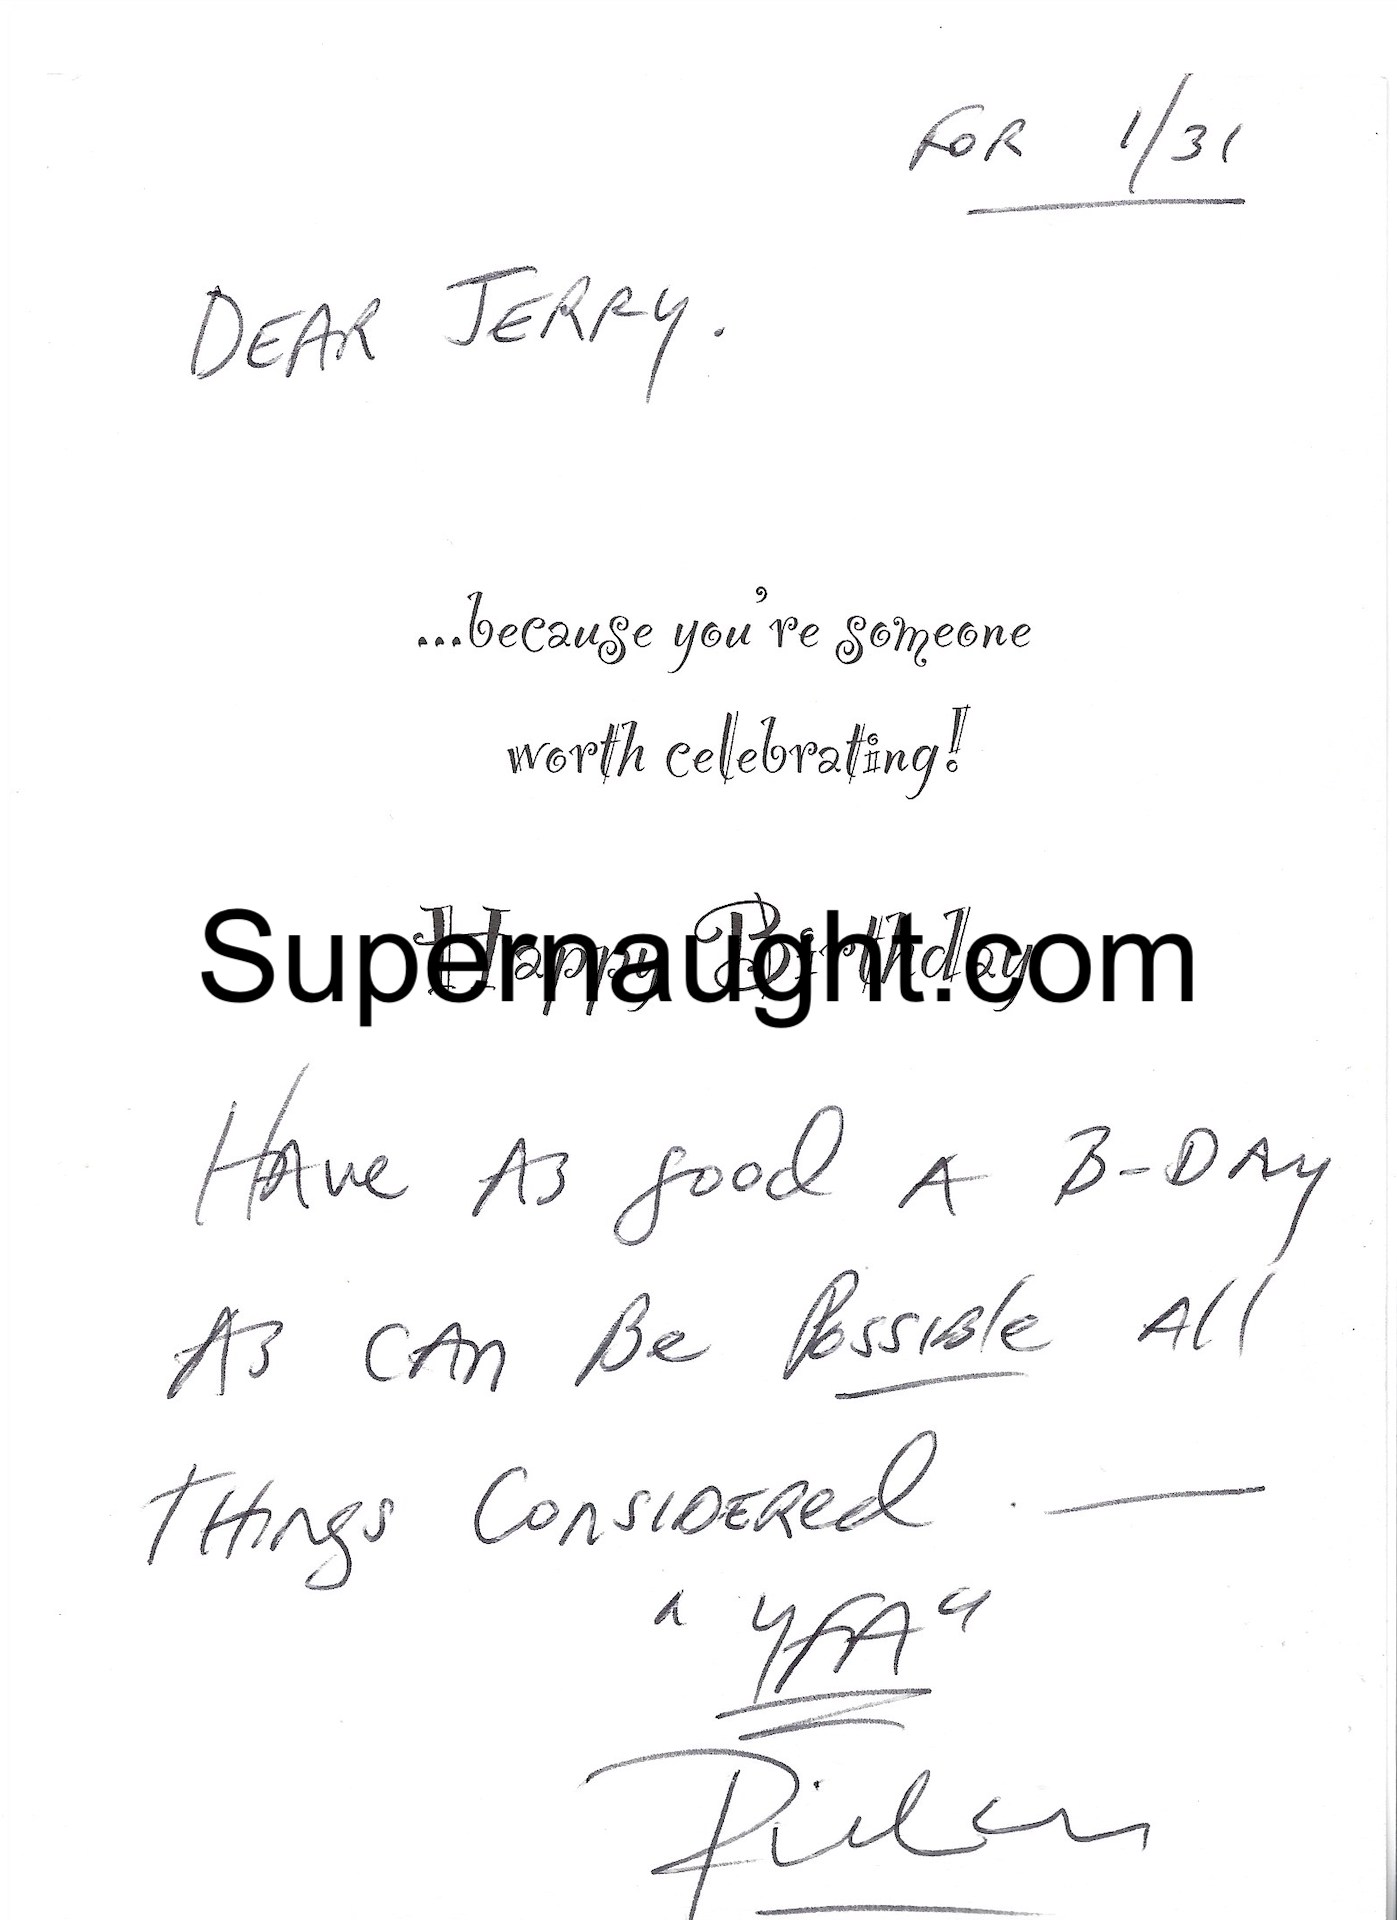 FOR 1/31
DEAR JERRY.
...because you're someone
worth celebrating!
Happy Birthday
Supernaught.com
HAve AS good A B-DAy
AS CAn Be PossIBle All
THIngs ConsIDERed . —
"YFA"